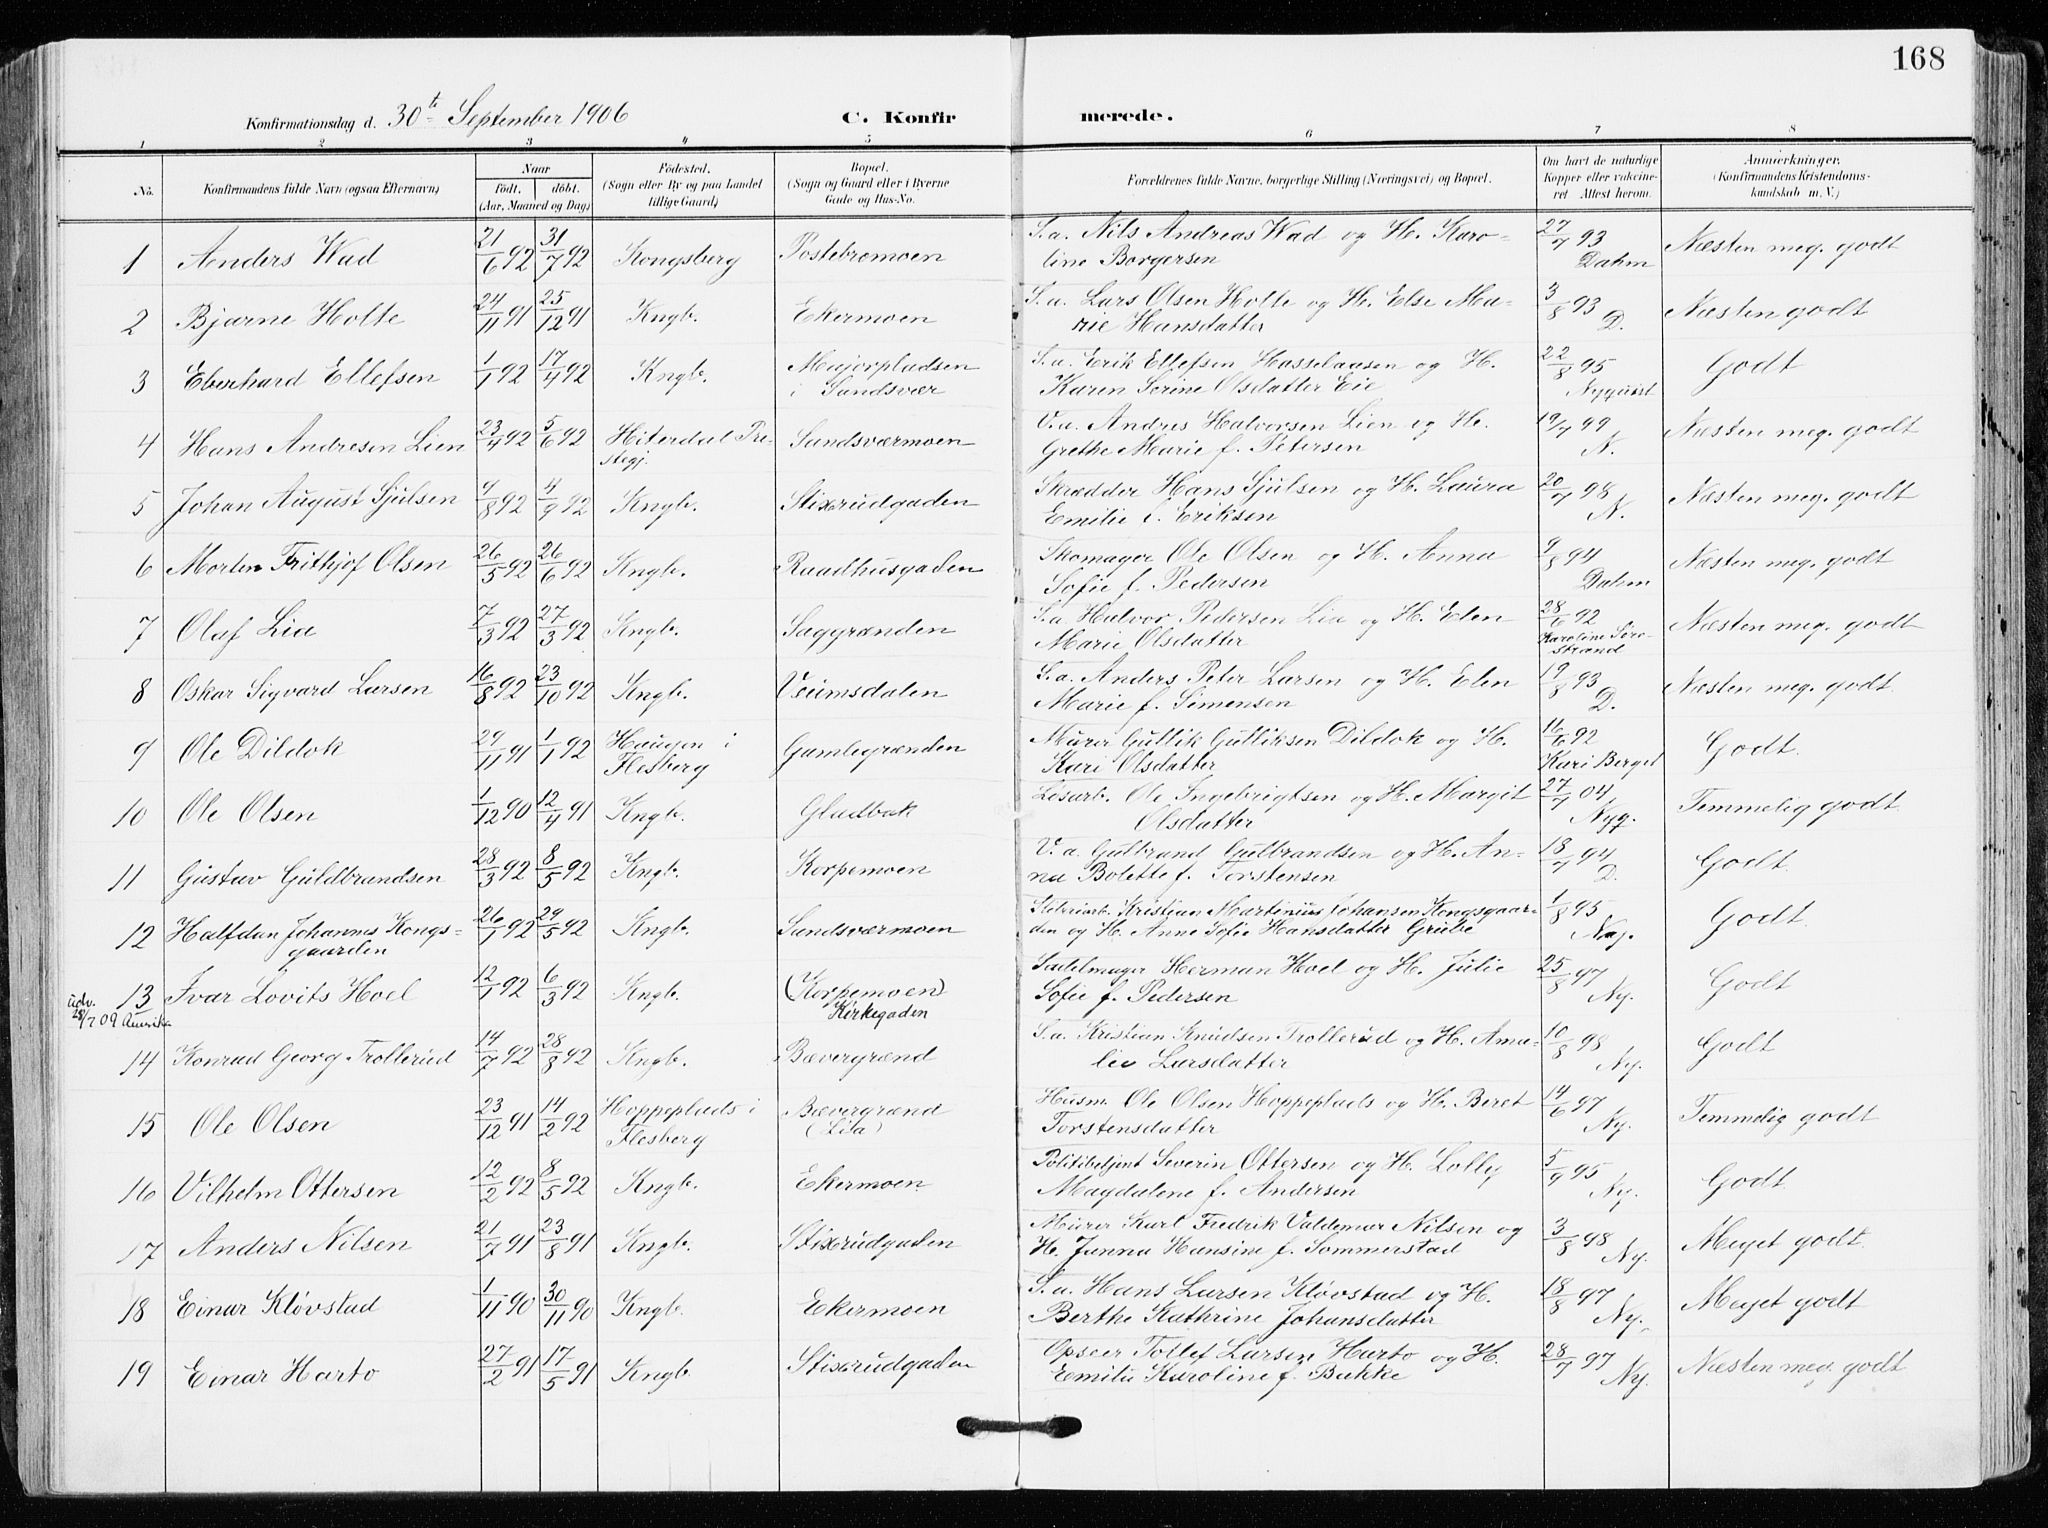 168
Konfirmationsdag d. 30te September 1906 C. Konfirmerede.
1 2 3 4 5 6 7 8
No. Konfirmandens fulde Navn (ogsaa Efternavn) Naar Födt. döbt. (Aar, Maaned og Dag) Födested. (Sogn eller By og paa Landet tillige Gaard) Bopæl. (Sogn og Gaard eller i Byerne Gade og Hus-No. Forældrenes fulde Navne, borgerlige Stilling (Næringsvei) og Bopæl. Om havt de naturlige Kopper eller vakcineret Attest herom. Anmærkninger, (Konfirmandens Kristendomskundskab m. V.)
1 Anders Wad 21/6 92 31/7 92 Kongsberg Postebromoen S.a. Nils Andreas Wad og H. Karo-
line Borgersen 27/7 93 Dahm Næsten meg. godt
2 Bjarne Holte 24/11 91 25/12 91 Kngb. Ekermoen S.a. Lars Olsen Holte og H. Else Ma-
rie Hansdatter 3/8 93 D. Næsten godt
3 Eberhard Ellefsen 1/1 92 17/4 92 Kngb. Majorpladsen
i Sandsvær S.a. Erik Ellefsen Hasselaasen og H.
Karen Serine Olsdatter Eie 22/8 95 Nyquist Godt
4 Hans Andresen Lien 23/4 92 5/6 92 Hiterdal Pre-
stegj. Sandsværmoen V.a. Andres Halvorsen Lien og H.
Grethe Marie f. Petersen 19/7 99 N. Næsten meg. godt
5 Johan August Sjulsen 9/8 92 4/9 92 Kngb. Stixrudgaden Skrædder Hans Sjulsen og H. Laura
Emilie f. Eriksen 20/7 98 N. Næsten meg. godt
6 Morten Frithjof Olsen 26/5 92 26/6 92 Kngb. Raadhusgaden Skomager Ole Olsen og H. Anna
Sofie f. Pedersen 9/8 94 Dahm Næsten meg. godt
7 Olaf Lia 7/3 92 27/3 92 Kngb. Saggrænden S.a. Halvor Pedersen Lia og H. Elen
Marie Olsdatter 28/6 92 Karoline Siro-
strand Næsten meg. godt
8 Oskar Sigvard Larsen 16/8 92 23/10 92 Kngb. Veumsdalen S.a. Anders Peter Larsen og H. Elen
Marie f. Simensen 19/8 93 D. Næsten meg. godt.
9 Ole Dildok 29/11 91 1/1 92 Haugen i
Flesberg Gamlegrænden Murer Gullik Gulliksen Dildok og H.
Kari Olsdatter 16/6 92 Kari Berget Godt.
10 Ole Olsen 1/12 90 12/4 91 Kngb. Gladbak Løsarb. Ole Ingebrigtsen og H. Margit
Olsdatter 27/7 04 Nyq. Temmelig godt
11 Gustav Guldbrandsen 28/3 92 8/5 92 Kngb. Korpemoen V.a. Gulbrand Gulbrandsen og H. An-
na Bolette f. Torstensen 18/7 94 D. Godt.
12 Halfdan Johannes Kongs-
gaarden 26/1 92 29/5 92 Kngb. Sandsværmoen Kristian Martinius Johansen Kongsgaar-
den og H. Anne Sofie Hansdatter Grube 1/8 95 Nyq. Godt.
13 Ivar Lovits Hoel 12/1 92 6/3 92 Kngb. (Korpemoen)
Kirkegaden Sadelmager Herman Hoel og H. Julie
Sofie f. Pedersen 25/8 97 Ny. Godt
udv.
28/7 09 Amerika
14 Konrad Georg Trollerud 14/7 92 28/8 92 Kngb. Bævergrænd S.a. Kristian Knudsen Trollerud og H. Ama-
lie Larsdatter 10/8 98 Ny. Godt
15 Ole Olsen 23/12 91 14/2 92 Hoppeplads i
Flesberg Bævergrænd
(Lila) Husm. Ole Olsen Hoppeplads og H. Beret
Torstensdatter 14/6 97 Ny. Temmelig godt
16 Vilhelm Ottersen 12/2 92 8/5 92 Kngb. Ekermoen. Politibetjent Severin Ottersen og H. Lolly
Magdalene f. Andersen 5/9 95 Ny. Godt.
17 Anders Nilsen 21/7 91 23/8 91 Kngb. Stixrudgaden Murer Karl Fredrik Valdemar Nilsen og
H. Janna Hansine f. Sommerstad 3/8 98 Ny. Meget godt.
18 Einar Kløvstad 1/11 90 30/11 90 Kngb. Ekermoen S.a. Hans Larsen Kløvstad og H.
Berthe Kathrine Johansdatter 18/8 97 Ny. Meget godt
19 Einar Harto 27/2 91 17/5 91 Kngb. Stixrudgaden Opseer Tollef Larsen Harto og H.
Emilie Karoline f. Bakke 28/7 97 Ny. Næsten meg. godt